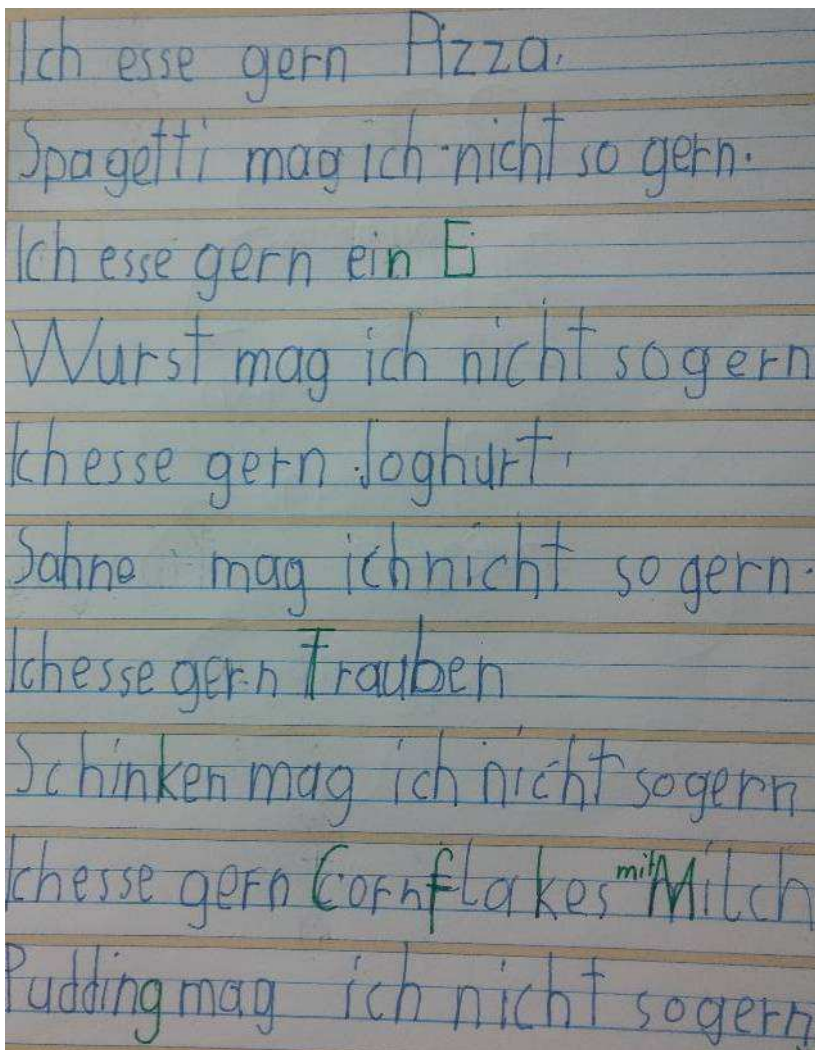 Ich esse gern Pizza.
Spagetti mag ich nicht so gern.
Ich esse gern ein Ei
Wurst mag ich nicht so gern
Ich esse gern Joghurt.
Sahne mag ich nicht so gern.
Ich esse gern Trauben
Schinken mag ich nicht so gern
Ich esse gern Cornflakes mit Milch
Pudding mag ich nicht so gern